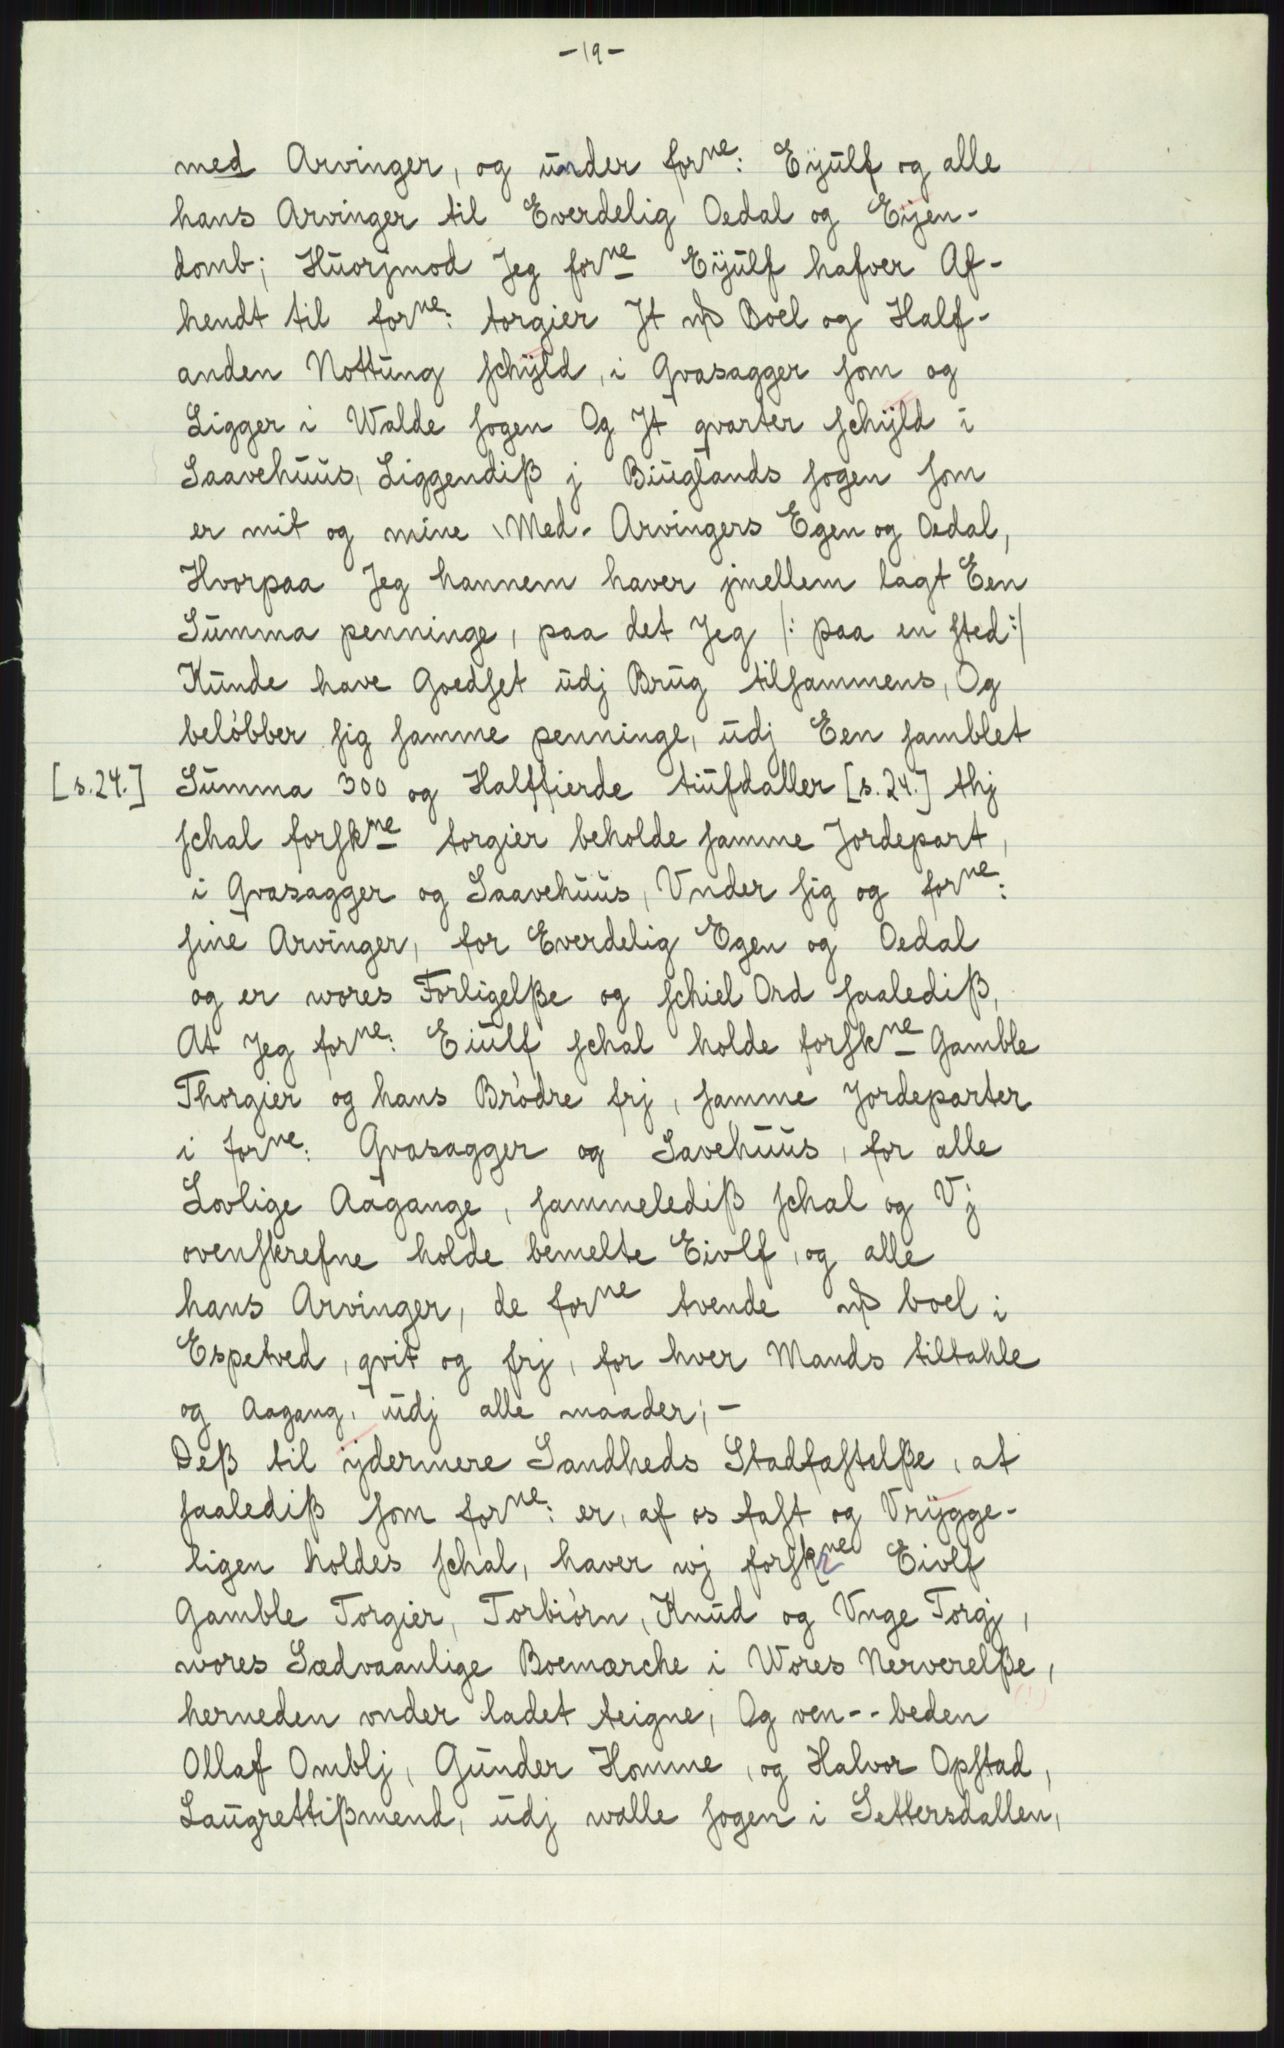 -19-
med Arvinger, og under forne: Eÿulf og alle
hans Arvinger til Everdelig Oedal og Eÿen-
domb; Huorjmod Jeg forne Eÿulf hafver Af-
hendt til forne: torgier Jt Boel og Half-
anden Nottung schÿld, i Qvasagger som og
Ligger i Walde sogen Og Jt qvarter schÿld i
Saavehuus, Liggendiß j Biuglands sogen som
er mit og mine Med-Arvingers Egen og Oedal,
Hvorpaa Jeg hannem haver jmellem lagt Een
Summa penninge, paa det Jeg /: paa en sted :/
Kunde have Goedset udj Brug tilsammens, Og
beløbber sig samme penninge, udj Een samblet
[s.24.] Summa 300 og Halffierde tiufdaller [s.24.] thj
schal forskne torgier beholde samme Jordepart,
i Qvasagger og Saavehuus, Vnder sig og forne:
sine Arvinger, for Everdelig Egen og Oedal
og er wores Forligelße og schiel Ord saalediß,
At Jeg forne: Eiulf schal holde forskne Gamble
Thorgier og hans Brødre frj, samme Jordeparter
i forne: Qvasagger og Savehuus, for alle
Lovlige Aagange, sammelediß schal og Vj
ovenskrefne holde bemelte Eivlf, og alle
hans Arvinger, de forne tvende boel i
Espetved, qvit og frj, for hver Mands tiltahle
og Aagang, udj alle maader; -
Deß til ÿdermere Sandheds Stadfæstelße, at
saalediß som forne: er, af os fast og Vrÿgge-
ligen holdes schal, haver wj forskne Eivlf
Gamble Torgier, Torbiørn, Knud og Vnge Torgj,
wores Sædvaanlige Boemærche i Wores Nerverelße,
herneden vnder ladet teigne, Og ven--beden
Ollaf Omblj, Gunder Homme, og Halvor Opstad,
Laugrettißmend, udj walle sogen i Settersdallen,